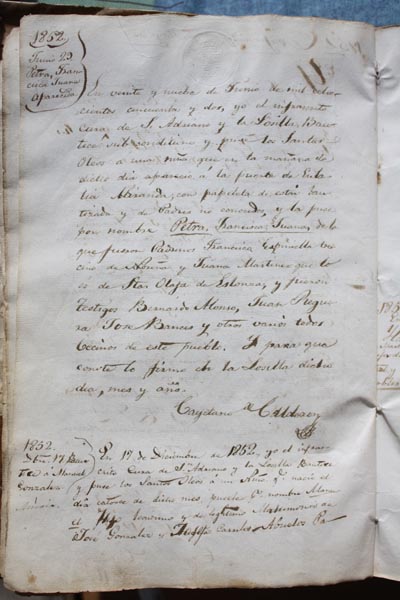 1852.
Junio 29
Petra, Fran-
cisca Juana
Aparecida
En veinte y nueve de Junio de mil ocho
cientos cincuenta y dos, yo el infrascrito
Cura de S. Adriano y la Losilla, Bau-
tice sub conditione y puse los Santos
Oleos a una niña que en la mañana de
dicho dia aparecio a la puerta de Eula-
lia Miranda, con papeleta de estar bau-
tizada y de Padres no conocidos, y la puse
por nombre Petra, Francisca Juana, de la
que fueron Padrinos Francisca Espinilla ve-
cina de y Juana Martinez que lo
es de Sta Olaja de Eslonza, y fueron
testigos Bernardo Alonso, Juan
Jose y otros varios todos
vecinos de este pueblo. Y para que
conste lo firmo en la Losilla dicho
dia, mes y año.
Cayetano de
1852.
Dbre 17 Bau
a Manuel
Gonzalez
En 17 de Diciembre de 1852, yo el infras-
crito Cura de S. Adriano y la Losilla Bautice
y puse los Santos Oleos a un Niño q. nacio el
dia catorce de dicho mes, puesele por nombre Manu-
el hijo legitimo y de legitimo Matrimonio de
Jose Gonzalez y Josefa Abuelos Pa-